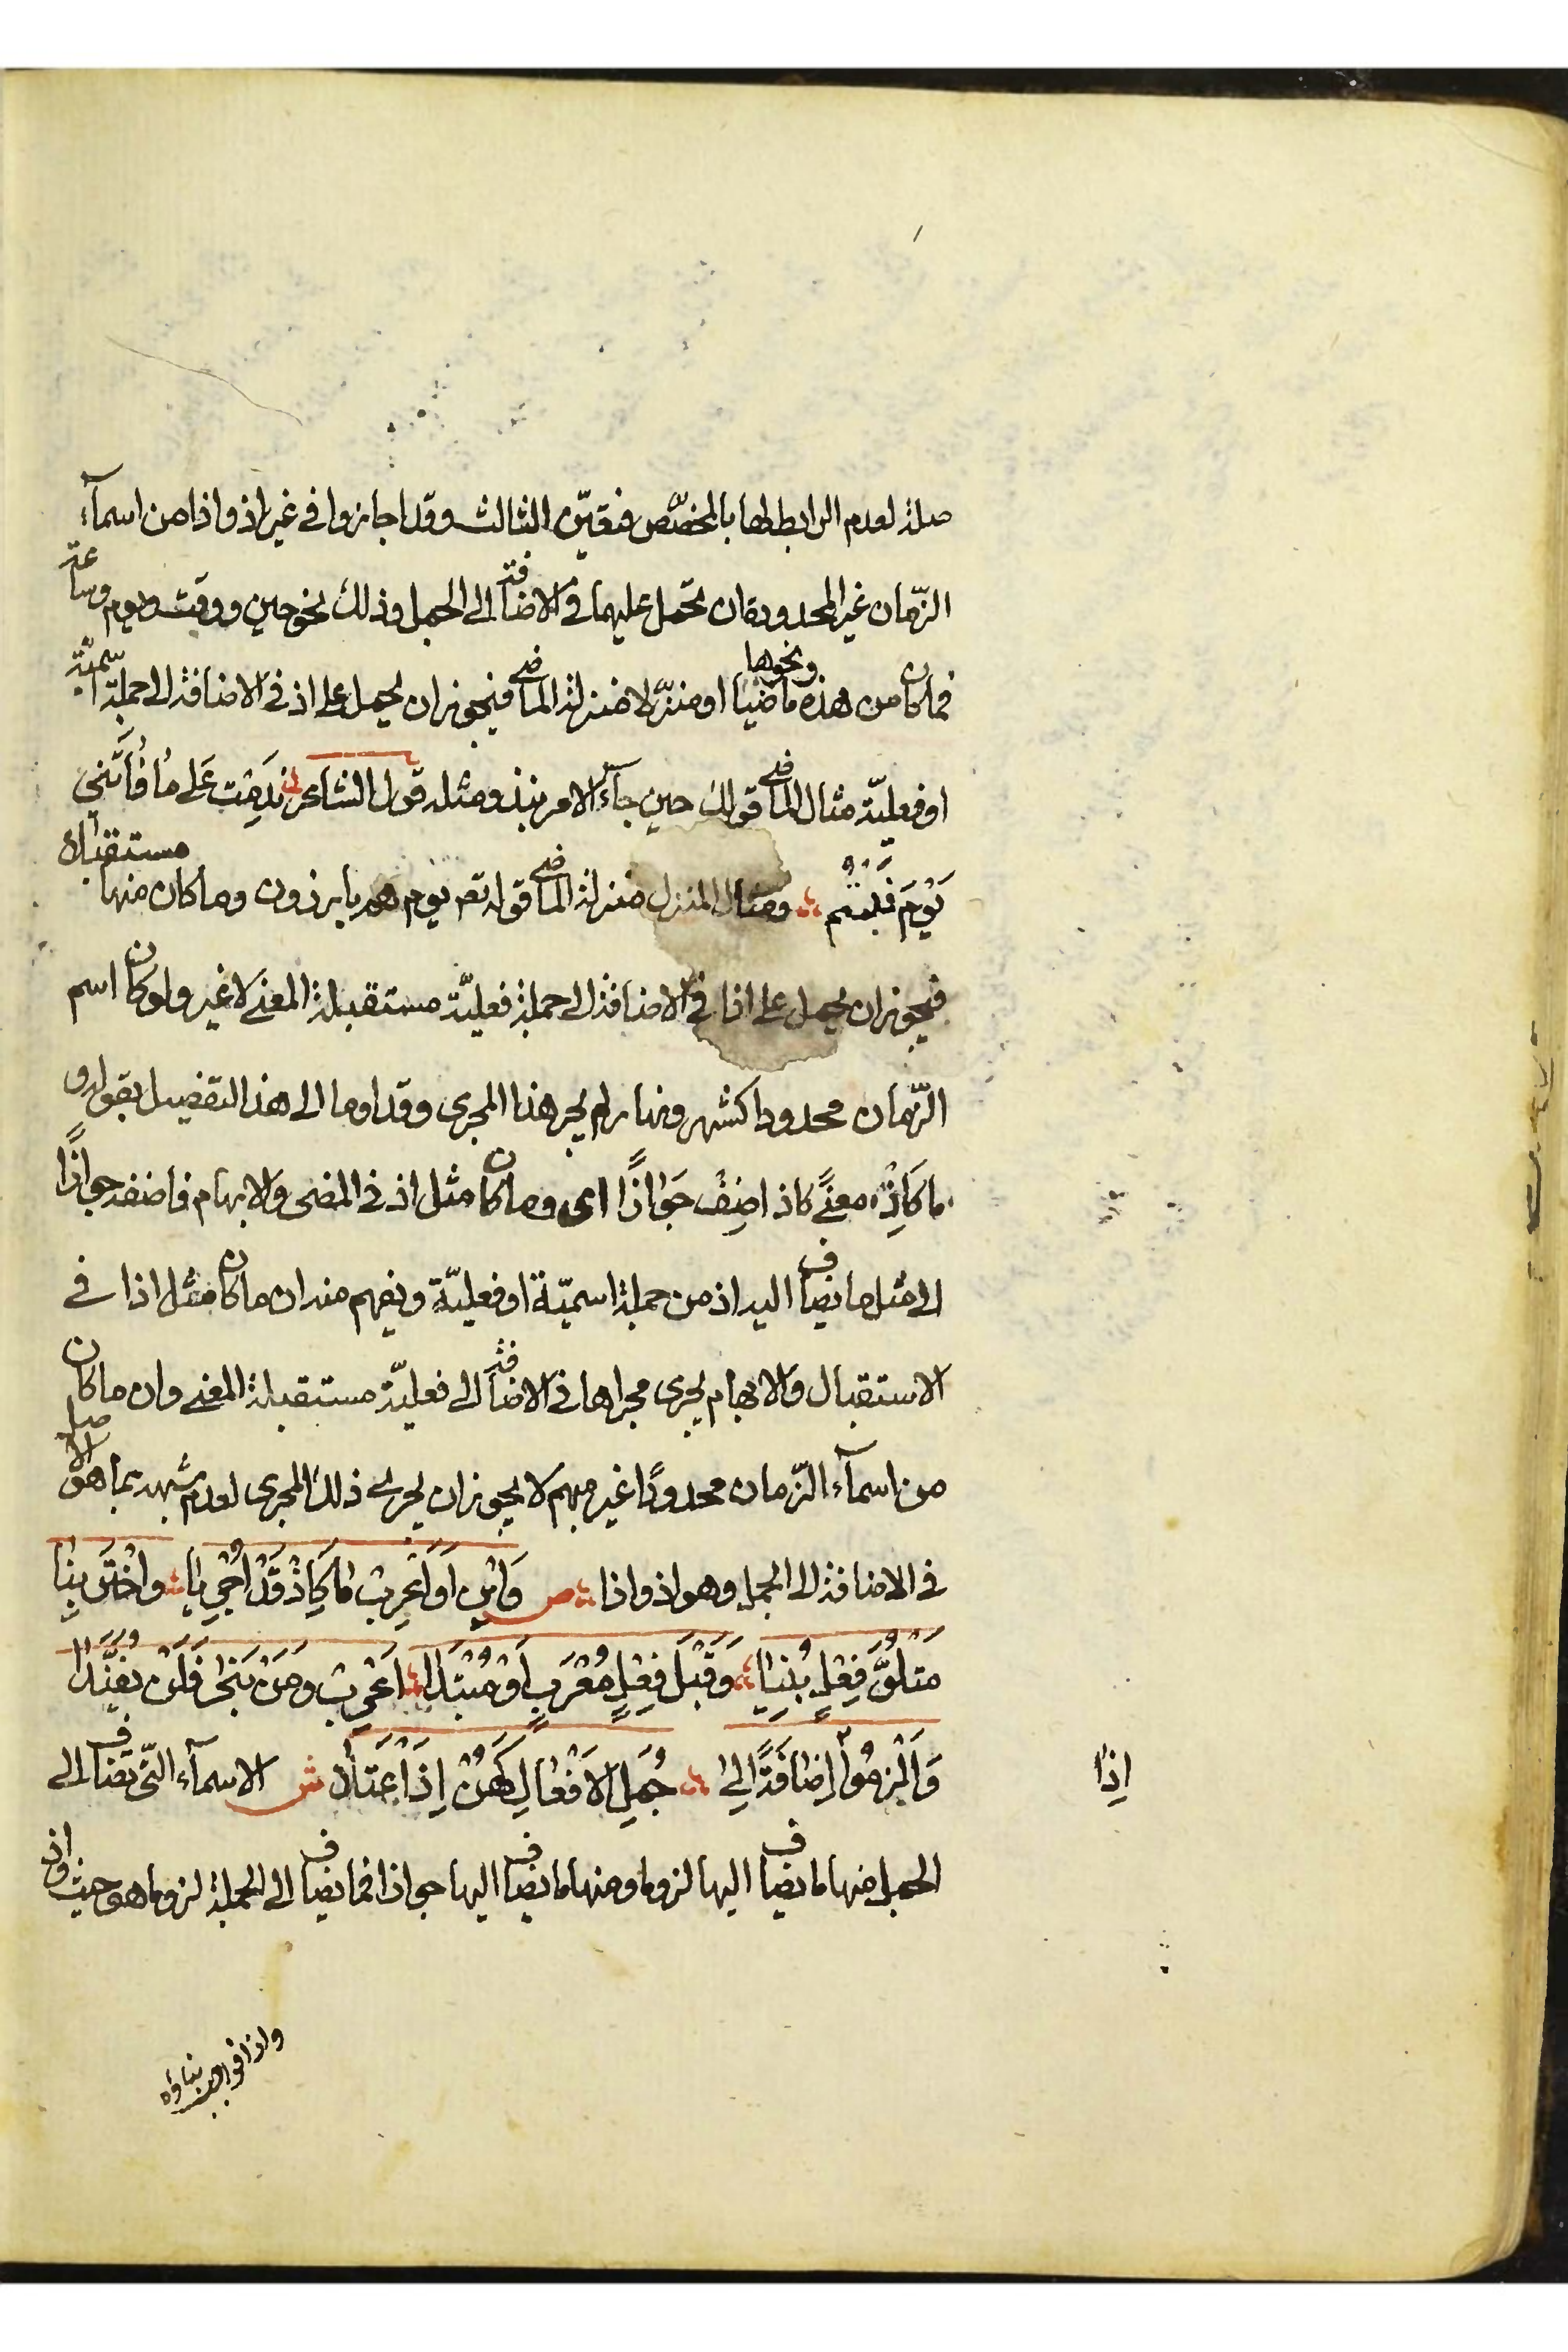 صلة لعدم الرابط لها بالمخصّص فتعيّن الثالث وقد اجازوا في غير اذ واذا من اسمآء
الزّمان غير المحدودة ان تحمل عليهما في الاضافة الى الجمل وذلك نحو حين ووقت ويوم وساعة
فما كان من هذه ونحوها ماضيا او منزّلا منزلة الماضي فيجوز ان يحمل على اذ في الاضافة الى جملة اسميّة
او فعليّة مثال الماضي قولك حين جآء الامر نبذ ومثله قول الشاعر نَدِمْتُ عَلى مَا فَاتَنى
يَوْمَ بَنْتُم ومثال المنزل منزلة الماضي قوله تعم يوم هم بارزون وما كان منها مستقبلا
فيجوز ان يحمل على اذا في الاضافة الى جملة فعليّة مستقبلة المعنى لا غير ولو كان اسم
الزّمان محدودا كشهر ونهار لم يجر هذا المجرى وقد اوما الى هذا التفصيل بقوله و
ما كَاِذْ معنًى كاذ اضِفْ جَوَازًا اى وما كان مثل اذ في المضى والابهام فاضفه جوازًا
الى مثل ما يضاف اليه اذ من جملة اسميّة او فعليّة ويفهم منه ان ما كان مثل اذا في
الاستقبال والابهام يجرى مجراها في الاضافة الى فعليّة مستقبلة المعنى وان ما كان
من اسمآء الزّمان محدودًا غير مبهم لا يجوز ان يجرى ذلك المجرى لعدم شبهه بما هو الاصل
في الاضافة الى الجمل وهو اذ واذا ص وَابْنِ اَوَ اَعْرِبْ مَا كَاِذْ قَدْ اُجْرِيَا وَاخْتَرْ بِنَا
مَتْلُوِّ فِعْلٍ بُنِيَا وَقَبْلَ فِعْلٍ مُعْرَبٍ اَوْ مُبْتَدَا اَعْرِبْ وَمَنْ بَنَى فَلَنْ يُفَنَّدَا
وَاَلْزَمُوا اِضَافَةً اِلى جُمَلِ الاَفْعَالِ كَهُنْ اِذَا اعْتَلَى ش الاسمآء الّتي تضاف الى
اِذَا
الجمل منها ما يضاف اليها لزوما ومنها ما يضاف اليها جوازا فما يضاف الى الجملة لزوما هو حيث واذ
واذا فواجب بناؤه